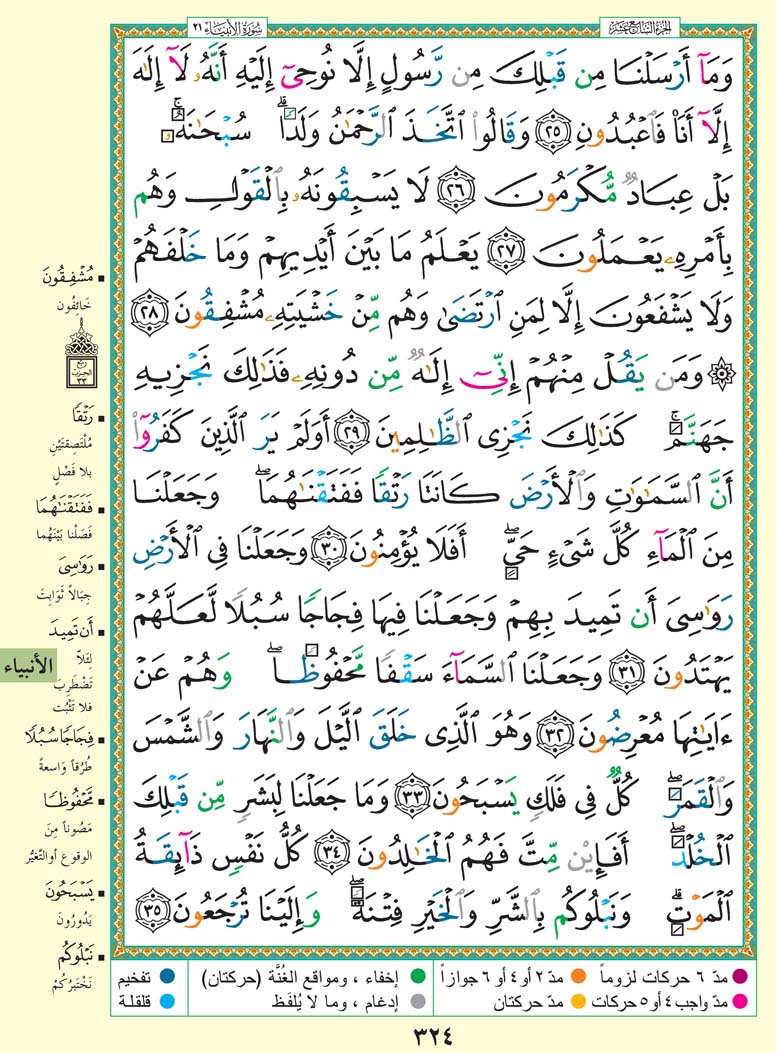 سُورَةُ الأَنبيَاء ٢١
الجزء السابع عشر
وَمَآ أَرْسَلْنَا مِن قَبْلِكَ مِن رَّسُولٍ إِلَّا نُوحِىٓ إِلَيْهِ أَنَّهُۥ لَآ إِلَٰهَ
إِلَّآ أَنَا۠ فَٱعْبُدُونِ ٢٥ وَقَالُوا۟ ٱتَّخَذَ ٱلرَّحْمَٰنُ وَلَدًا ۗ سُبْحَٰنَهُۥ ۚ
بَلْ عِبَادٌ مُّكْرَمُونَ ٢٦ لَا يَسْبِقُونَهُۥ بِٱلْقَوْلِ وَهُم
بِأَمْرِهِۦ يَعْمَلُونَ ٢٧ يَعْلَمُ مَا بَيْنَ أَيْدِيهِمْ وَمَا خَلْفَهُمْ
وَلَا يَشْفَعُونَ إِلَّا لِمَنِ ٱرْتَضَىٰ وَهُم مِّنْ خَشْيَتِهِۦ مُشْفِقُونَ ٢٨
۞ وَمَن يَقُلْ مِنْهُمْ إِنِّىٓ إِلَٰهٌ مِّن دُونِهِۦ فَذَٰلِكَ نَجْزِيهِ
جَهَنَّمَ ۚ كَذَٰلِكَ نَجْزِى ٱلظَّٰلِمِينَ ٢٩ أَوَلَمْ يَرَ ٱلَّذِينَ كَفَرُوٓا۟
أَنَّ ٱلسَّمَٰوَٰتِ وَٱلْأَرْضَ كَانَتَا رَتْقًا فَفَتَقْنَٰهُمَا ۖ وَجَعَلْنَا
مِنَ ٱلْمَآءِ كُلَّ شَىْءٍ حَىٍّ ۖ أَفَلَا يُؤْمِنُونَ ٣٠ وَجَعَلْنَا فِى ٱلْأَرْضِ
رَوَٰسِىَ أَن تَمِيدَ بِهِمْ وَجَعَلْنَا فِيهَا فِجَاجًا سُبُلًا لَّعَلَّهُمْ
يَهْتَدُونَ ٣١ وَجَعَلْنَا ٱلسَّمَآءَ سَقْفًا مَّحْفُوظًا ۖ وَهُمْ عَنْ
ءَايَٰتِهَا مُعْرِضُونَ ٣٢ وَهُوَ ٱلَّذِى خَلَقَ ٱلَّيْلَ وَٱلنَّهَارَ وَٱلشَّمْسَ
وَٱلْقَمَرَ ۖ كُلٌّ فِى فَلَكٍ يَسْبَحُونَ ٣٣ وَمَا جَعَلْنَا لِبَشَرٍ مِّن قَبْلِكَ
ٱلْخُلْدَ ۖ أَفَإِي۟ن مِّتَّ فَهُمُ ٱلْخَٰلِدُونَ ٣٤ كُلُّ نَفْسٍ ذَآئِقَةُ
ٱلْمَوْتِ ۗ وَنَبْلُوكُم بِٱلشَّرِّ وَٱلْخَيْرِ فِتْنَةً ۖ وَإِلَيْنَا تُرْجَعُونَ ٣٥
مُشْفِقُونَ
خَائِفُون
ربع
الحزب
٣٣
رَتْقًا
مُلْتَصِقَتَيْنِ
بلا فَصْلٍ
فَفَتَقْنَٰهُمَا
فَصَلْنا بَيْنَهُما
رَوَٰسِىَ
جِبَالاً ثَوَابِتَ
أَن تَمِيدَ
لِئَلاّ
تَضْطَرِبَ
فلا تَثْبُت
الأنبياء
فِجَاجًا سُبُلًا
طُرُقاً وَاسعةً
مَّحْفُوظًا
مَصُوناً مِنَ
الوقوع أو التَّغَيُّر
يَسْبَحُونَ
يَدُورُونَ
نَبْلُوكُم
نَخْتَبِرُكُمْ
مدّ ٦ حركات لزوماً مدّ ٢ أو ٤ أو ٦ جوازاً إخفاء ، ومواقع الغُنَّة (حركتان) تفخيم
مدّ واجب ٤ أو ٥ حركات مدّ حركتان إدغام ، وما لا يُلفَظ قلقلة
٣٢٤